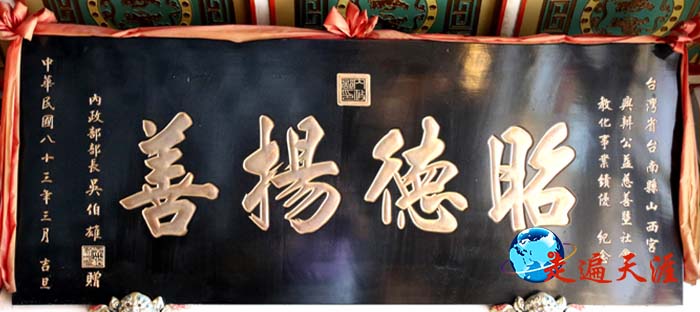 台灣省台南縣山西宮
興辦公益慈善暨社會
教化事業績優 紀念
昭德揚善
內政部部長 吳伯雄 贈
中華民國八十三年三月 吉旦
走遍天涯